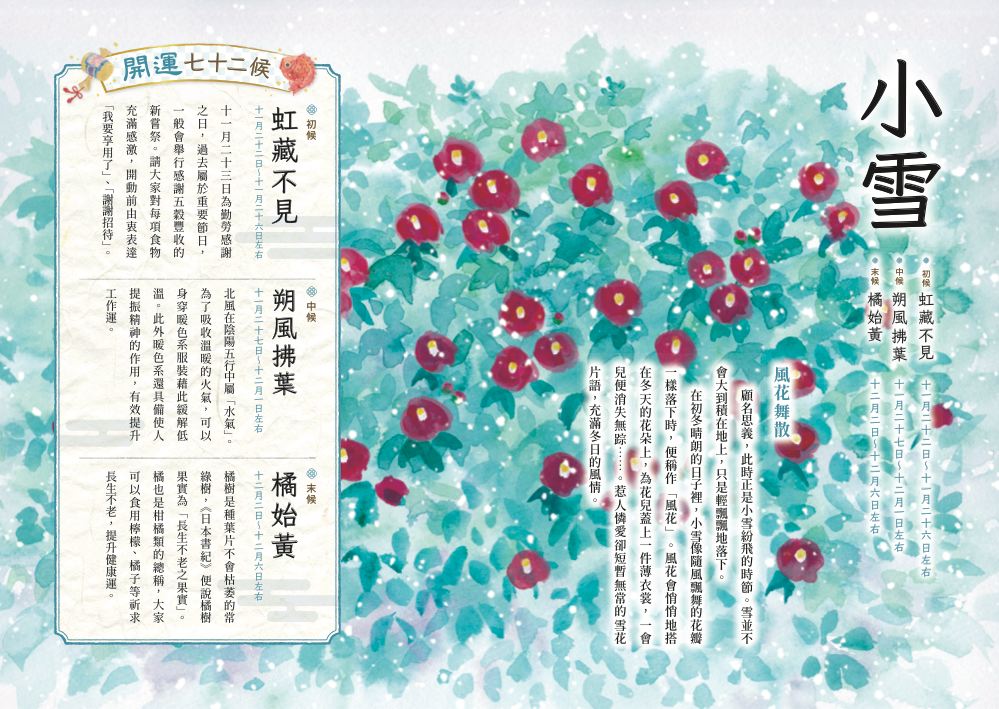 小雪
初候 虹藏不見 十一月二十二日～十一月二十六日左右
中候 朔風拂葉 十一月二十七日～十二月一日左右
末候 橘始黃 十二月二日～十二月六日左右
風花舞散
顧名思義，此時正是小雪紛飛的時節。雪並不
會大到積在地上，只是輕飄飄地落下。
在初冬晴朗的日子裡，小雪像隨風飄舞的花瓣
一樣落下時，便稱作「風花」。風花會悄悄地搭
在冬天的花朵上，為花兒蓋上一件薄衣裳，一會
兒便消失無踪……。惹人憐愛卻短暫無常的雪花
片語，充滿冬日的風情。
開運七十二候
初候
虹藏不見
十一月二十二日～十一月二十六日左右
十一月二十三日為勤勞感謝
之日，過去屬於重要節日，
一般會舉行感謝五穀豐收的
新嘗祭。請大家對每項食物
充滿感激，開動前由衷表達
「我要享用了」、「謝謝招待」。
中候
朔風拂葉
十一月二十七日～十二月一日左右
北風在陰陽五行中屬「水氣」。
為了吸收溫暖的火氣，可以
身穿暖色系服裝藉此緩解低
溫。此外暖色系還具備使人
提振精神的作用，有效提升
工作運。
末候
橘始黃
十二月二日～十二月六日左右
橘樹是種葉片不會枯萎的常
綠樹，《日本書紀》便說橘樹
果實為「長生不老之果實」。
橘也是柑橘類的總稱，大家
可以食用檸檬、橘子等祈求
長生不老，提升健康運。